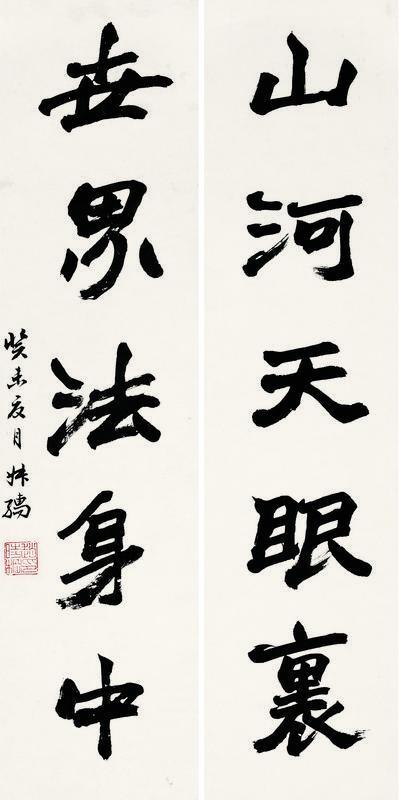 山河天眼裏
世界法身中
癸未夏月 林鵬